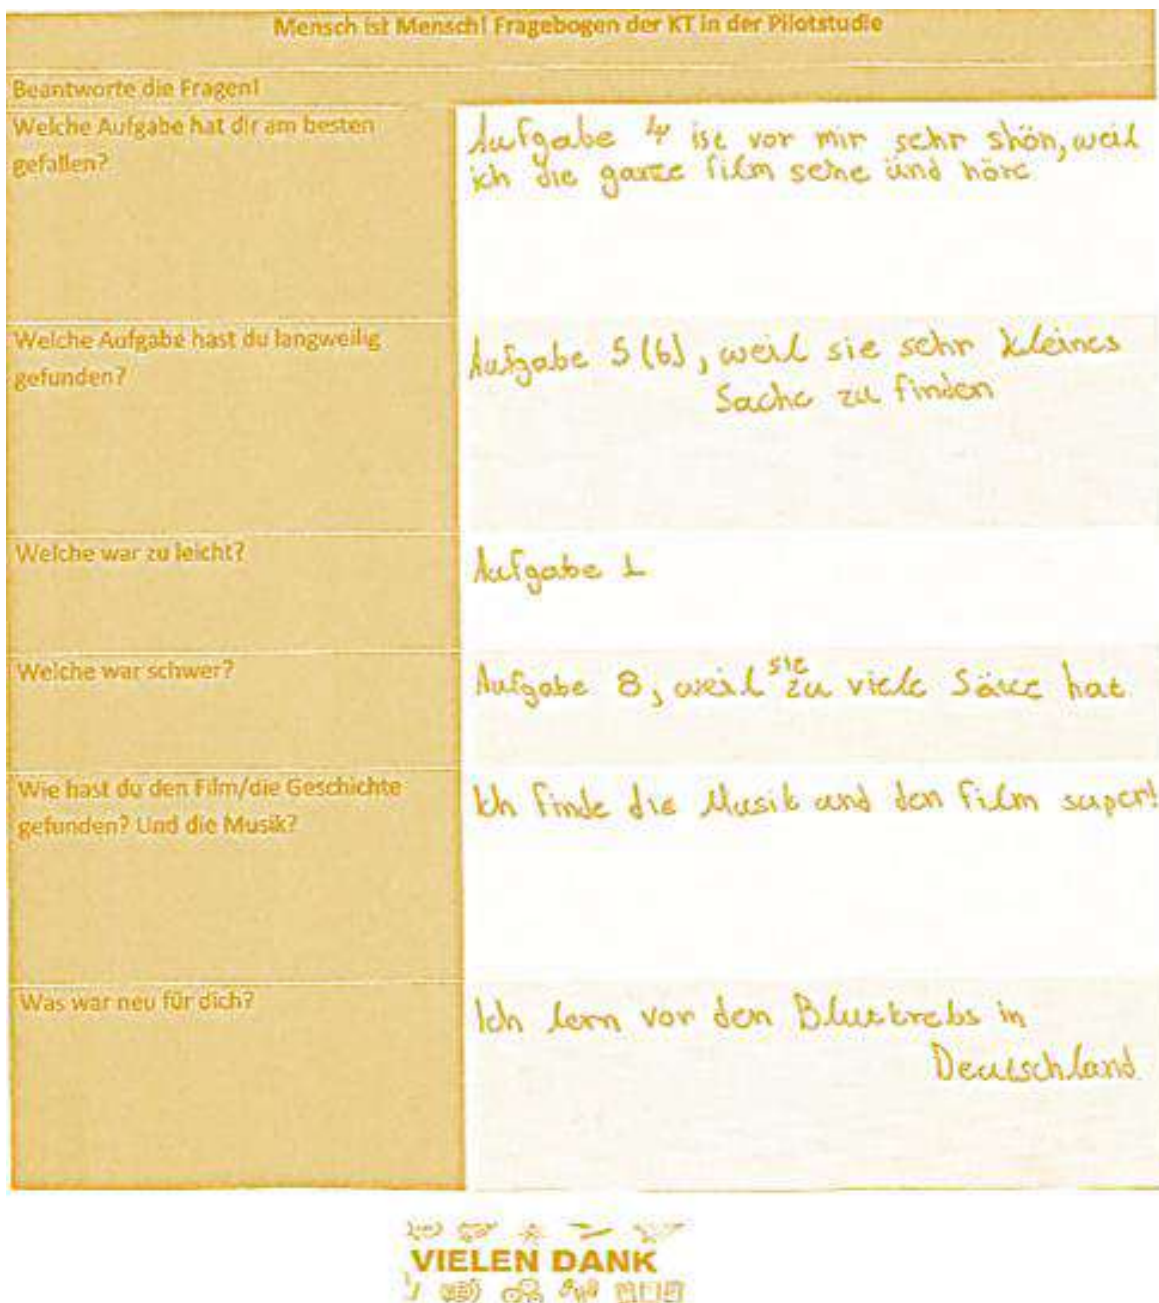 Mensch ist Mensch! Fragebogen der KT in der Pilotstudie
Beantworte die Fragen!
Welche Aufgabe hat dir am besten
gefallen?
Aufgabe 4 ist vor mir sehr shön, weil
ich die ganze film sehe und höre
Welche Aufgabe hast du langweilig
gefunden?
Aufgabe 5 (6), weil sie sehr kleines
Sache zu finden
Welche war zu leicht?
Aufgabe 1
Welche war schwer?
Aufgabe 8, weil sie zu viele Sätze hat
Wie hast du den Film/die Geschichte
gefunden? Und die Musik?
Ich finde die Musik und den Film super!
Was war neu für dich?
Ich lern vor den Blutkrebs in
Deutschland
VIELEN DANK